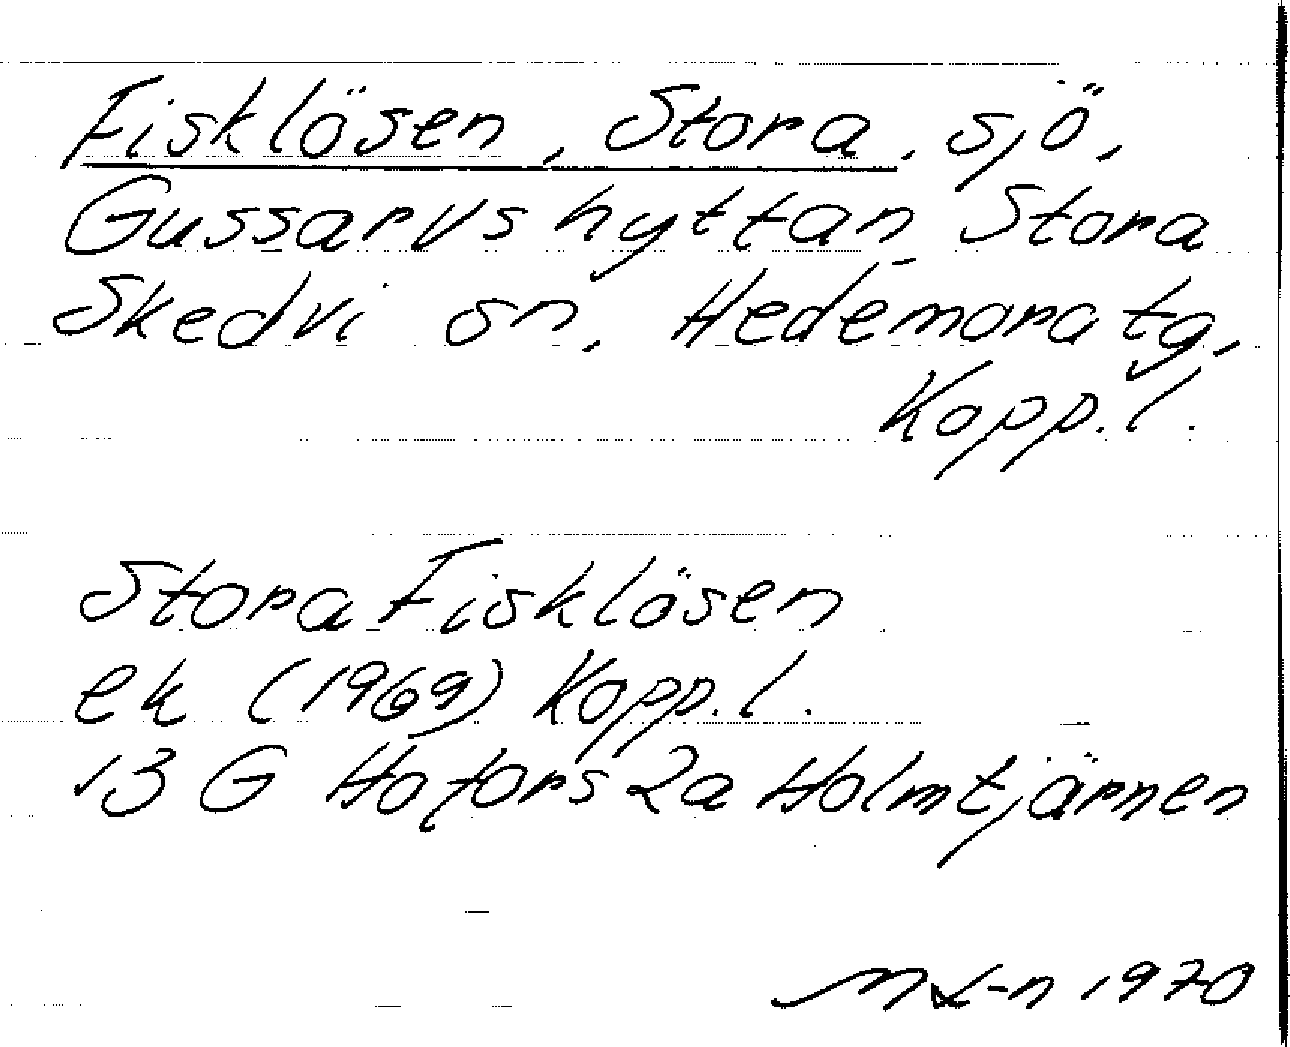 Fisklösen, Stora, sjö,
Gussarvshyttan, Stora
Skedvi sn, Hedemora tg,
Kopp. l.
Stora Fisklösen
ek (1969) Kopp. l.
13 G Hofors 2a Holmtjärnen
1970